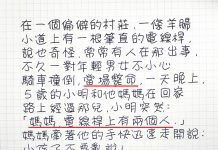 在一個偏僻的村莊,一條羊腸
小道上有一根筆直的電線桿,
說也奇怪,常常有人在那出事,
不久一對年輕男女不小心
騎車撞倒,當場斃命,一天晚上,
5歲的小明和他媽媽在回家
路上經過那兒,小明突然:
「媽媽,電線桿上有兩個人.」
媽媽牽著他的手快迅速走開說: